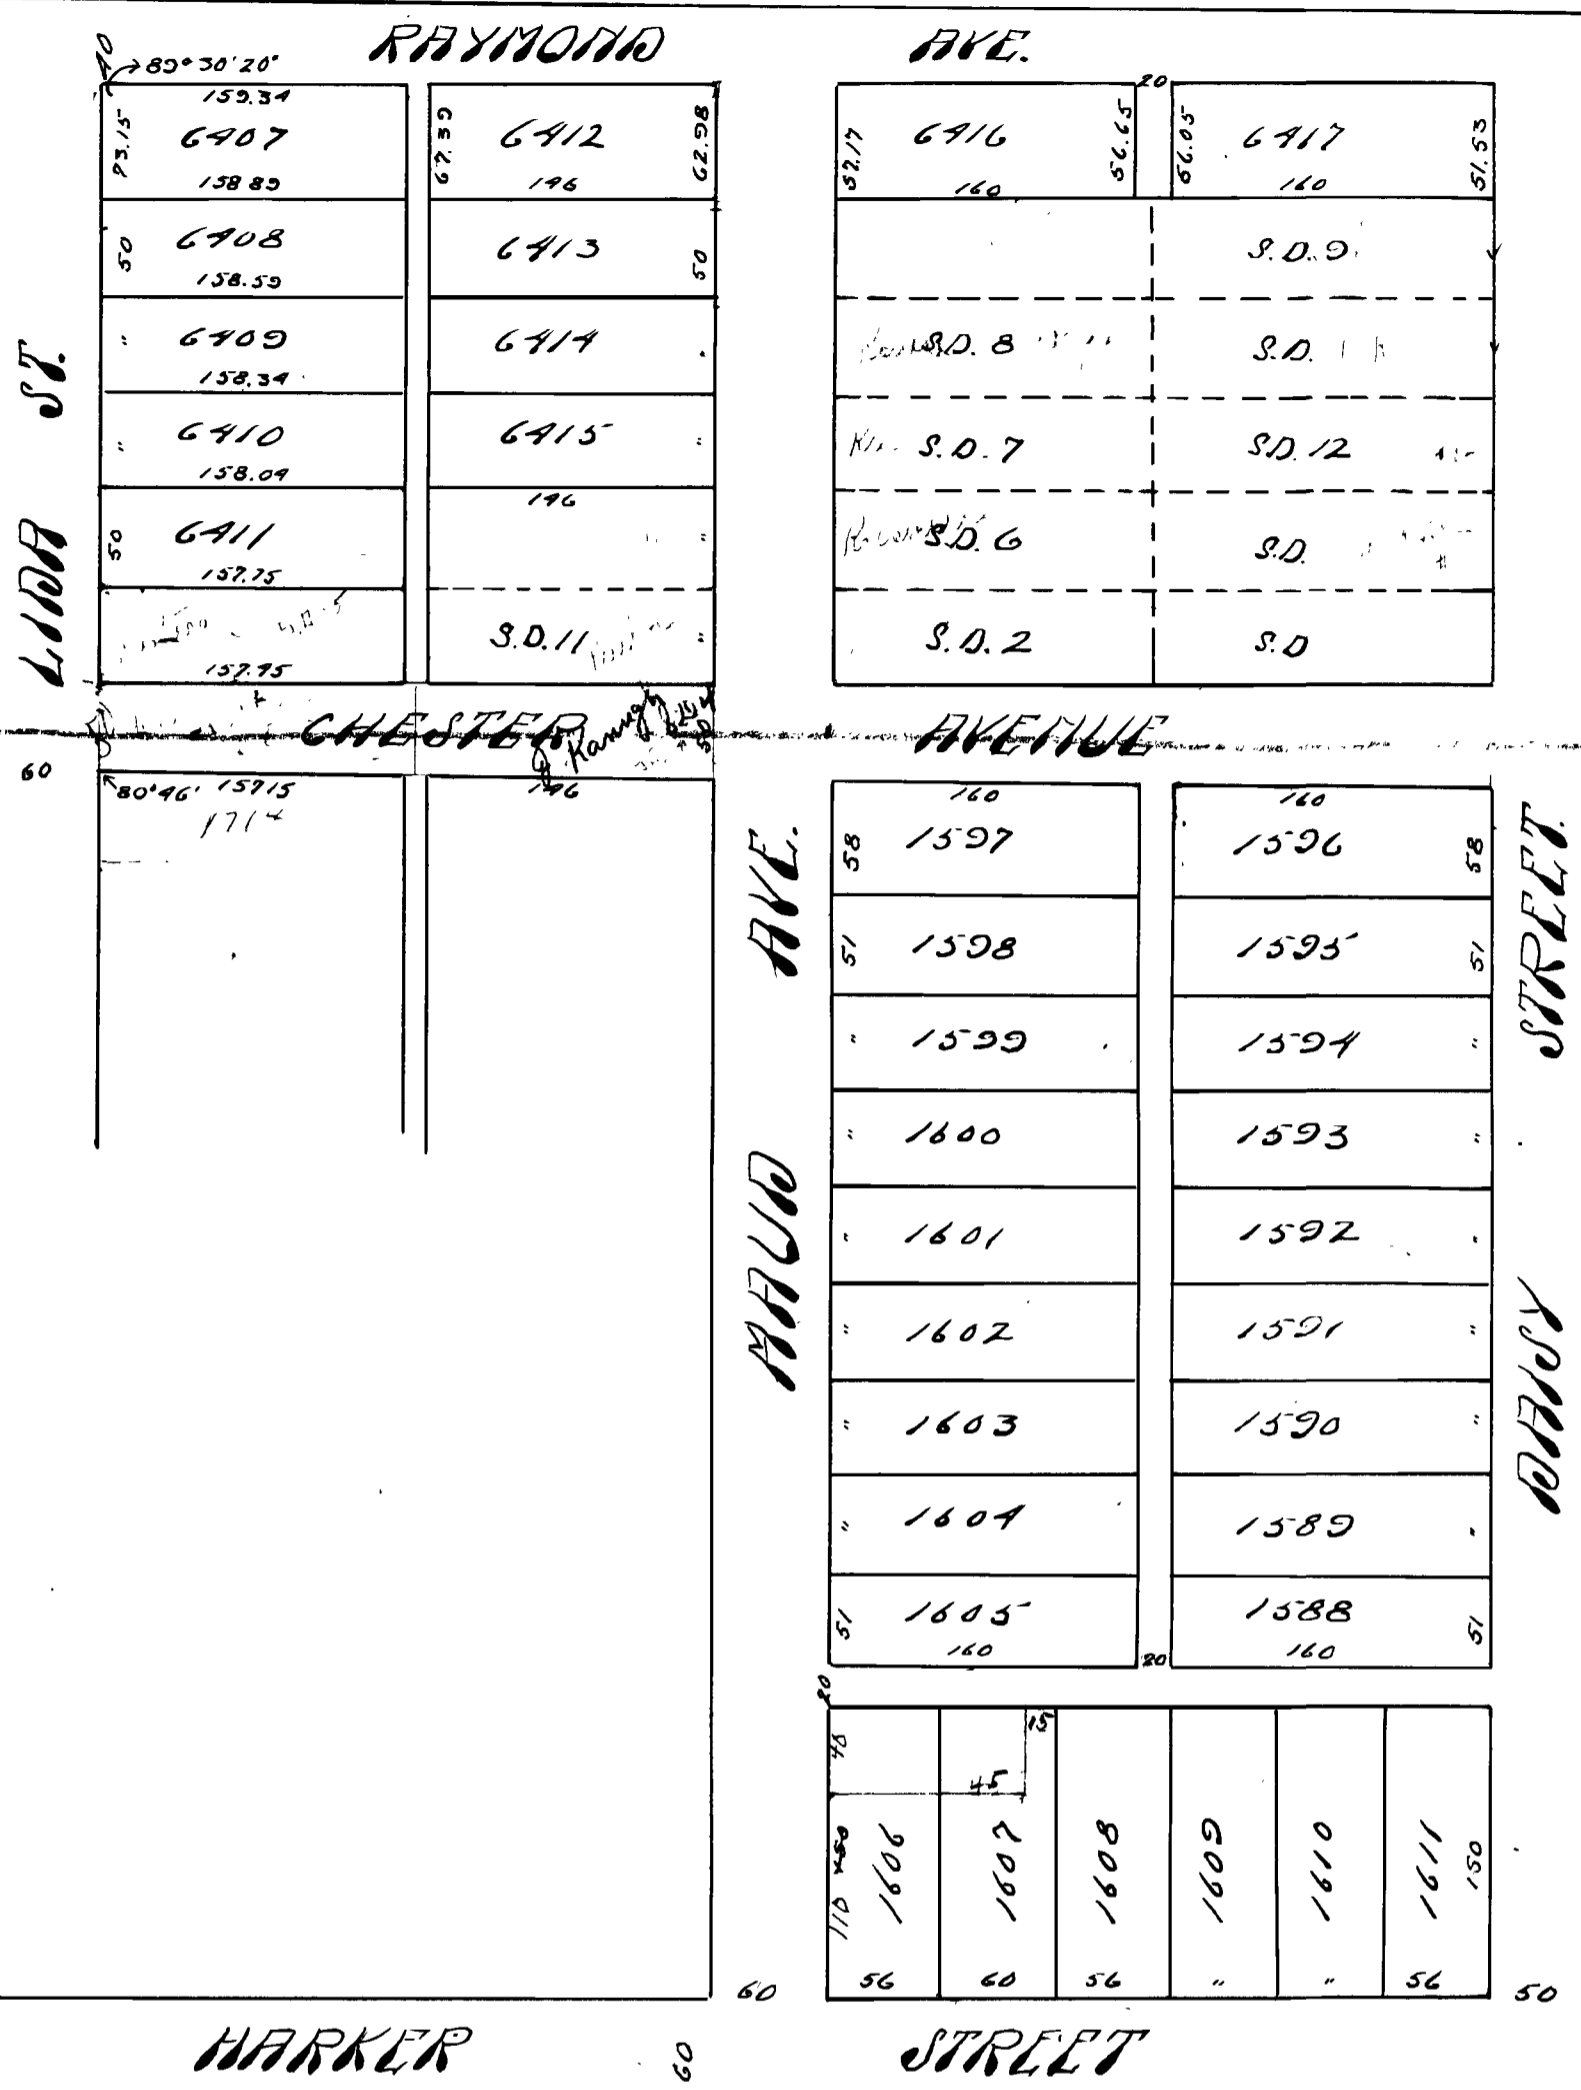 RAYMOND AVE.
10
89°30'20"
159.34
73.15
6407
158.89
50
6408
158.59
"
6409
158.34
"
6410
158.04
50
6411
157.75
157.45
67.39
6412
62.98
146
6413
50
6414
"
6415
"
146
"
S.D. 11
"
20
57.17
6416
56.65
160
56.05
6417
51.53
160
S.D. 9
S.D. 8
S.D.
S.D. 7
S.D. 12
S.D. 6
S.D.
S.D. 2
S.D
LIDA ST.
CHESTER AVENUE
60
80°46'
157.15
146
MAUD AVE.
DAISY STREET.
160
58
1597
51
1598
"
1599
"
1600
"
1601
"
1602
"
1603
"
1604
51
1605
160
160
1596
58
1595
51
1594
"
1593
"
1592
"
1591
"
1590
"
1589
"
1588
51
160
20
20
40
15
45
110
1606
1607
1608
1609
1610
1611
150
56
60
56
"
"
56
60
50
HARKER STREET
60